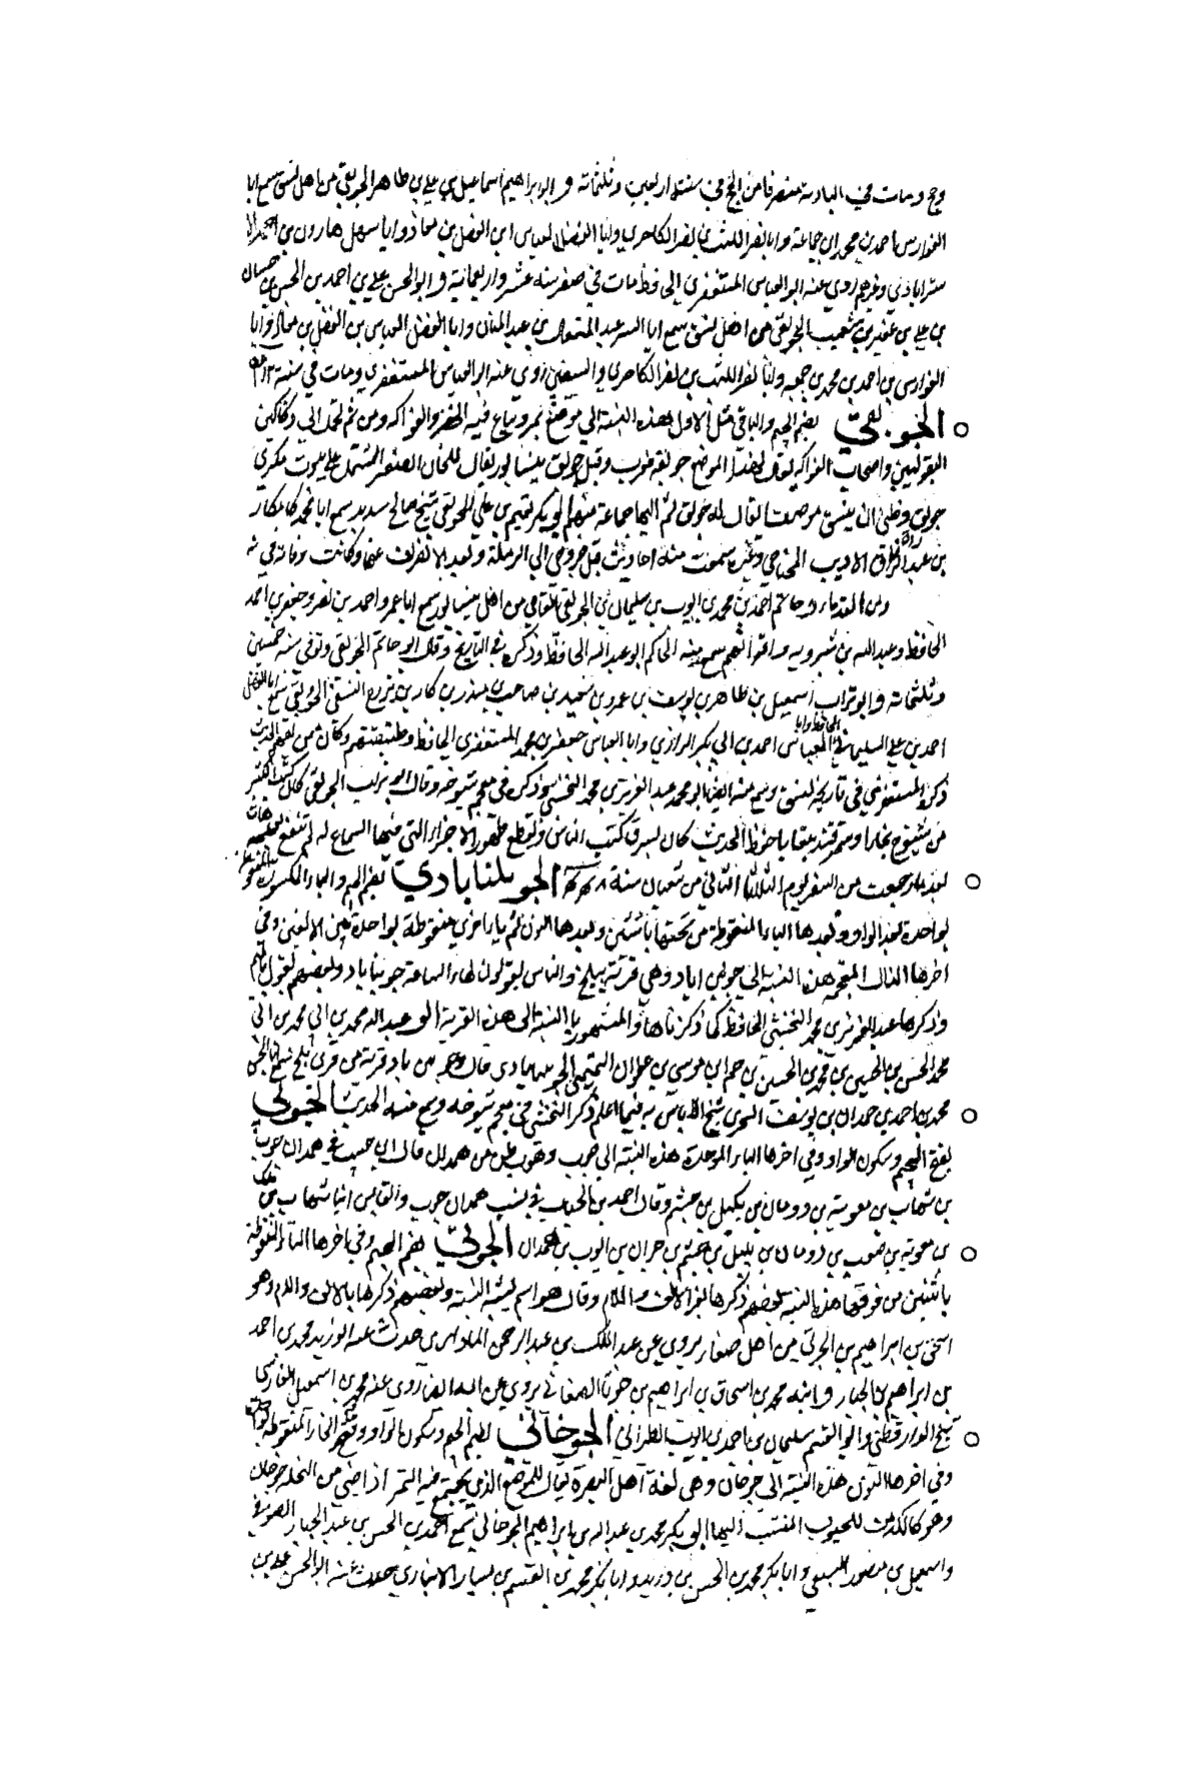 وحج ومات في البادية منصرفا من الحج في سنة اربعين وثلثمائة و ابو ابراهيم اسماعيل بن علي بن طاهر الجوبقي من اهل نسف سمع ابا
الفوارس احمد بن محمد بن جماعة وابا نصر الليث بن نصر الكاجري وابا الفضل العباس ابن الفضل بن معاذ وابا سهل هارون بن احمد الا
ستراباذي وغيرهم روى عنه ابو العباس المستغفري الحافظ مات في صفر سنة عشر واربعمائة و ابو الحسن علي بن احمد بن الحسن بن حسان
بن علي بن شعيب الجوبقي من اهل نسف سمع ابا عبد بن عبد المنان وابا الفضل العباس بن الفضل بن معاذ وابا
الفوارس بن احمد بن محمد بن جمعة وابا نصر الليث بن نصر الكاجري والسبعين روى عنه ابو العباس المستغفري ومات في سنة
الجوبقي بضم الجيم والباقي مثل الاول هذه النسبة الى موضع بمرو يباع فيه الخضر والفواكه ومن ثم تحمل الى دكاكين
البقوليين واصحاب الفواكه يقال لهذا الموضع جوبقه فعرب وقيل جوبق بنيسابور يقال للخان الصغير المشتمل على بيوت تكرى
جوبق وظني ان بنسف موضعا يقال له جوبق ثم اليها جماعة منهم ابو بكر تميم بن علي الجوبقي شيخ صالح سديد سمع ابا محمد كامكار
بن عبد الرزاق الاديب المحتاجي وغيره سمعت منه احاديث قبل خروجي الى الرحلة وبعد الانصراف عنها وكانت وفاته في سنة
ومن القدماء ابو حاتم احمد بن محمد بن ايوب بن سليمان الجوبقي القاضي من اهل نيسابور سمع ابا عمرو احمد بن نصر وجعفر بن احمد
الحافظ وعبد الله بن شيرويه واقرانهم سمع منه الحاكم ابو عبد الله الحافظ وذكره في التاريخ وقال ابو حاتم الجوبقي وتوفي سنة خمسين
وثلثمائة و ابو تراب اسمعيل بن طاهر بن يوسف بن عمرو بن معبد بن صاحب بن منذر بن كار النسفي الجوبقي سمع ابا الفضل
احمد بن علي السليماني الحافظ وابا العباس احمد بن ابي بكر الرازي وابا العباس جعفر بن محمد المستغفري الحافظ وطبقتهم وكان من
ذكره المستغفري في تاريخ نسف وسمع منه ايضا ابو محمد عبد العزيز بن محمد النخشبي وذكره في معجم شيوخه وقال ابو تراب الجوبقي كان كتب الكثير
من شيوخ بخارا وسمرقند بقايا حفظ الحديث كان يسرق كتب الناس ويقطع ظهور الاجزاء التي فيها السماع له لم ينتفع بعلمه مات
بعد ما رجعت من السفر يوم الثلثاء الثاني من شعبان سنة الجوبينابادي بضم الجيم والباء المكسورة المنقوطة
بواحدة بعد الواو وبعدها الياء المنقوطة من تحتها باثنتين وبعدها النون ثم باء اخرى منقوطة بواحدة بين الالفين وفي
اخرها الذال المعجمة هذه النسبة الى جوبين اباد وهي قرية ببلخ والناس يقولون لها الساعة جوبناباد وبعضهم يقول بالميم
وذكرها عبد العزيز بن محمد النخشبي الحافظ كما ذكرناها والمشهور بالنسبة الى هذه القرية ابو عبد الله محمد بن ابي محمد بن ابي
محمد الحسن بن الحسين بن محمد بن الحسين بن حم ابن موسى بن علوان التميمي الجوبينابادي قال قرية من قرى بلخ
محمد بن احمد بن حمدان بن يوسف السجزي شيخ لا باس به فيما اعلم ذكره النخشبي في معجم شيوخه وسمع منه الحديث الجوبي
بفتح الجيم وسكون الواو وفي اخرها الباء الموحدة هذه النسبة الى جوب وهو بطن من همدان قال ابن حبيب في همدان جوب
بن شهاب بن معوية بن دومان بن بكيل بن جشم وقال احمد بن الحباب في نسب همدان جوب والقابس ابنا شهاب بن مالك
بن معوية بن صعب بن دومان بن بكيل بن جشم بن خيران بن نوف بن همدان الجوتي بضم الجيم وفي اخرها التاء المنقوطة
باثنتين من فوقها هذه النسبة بعضهم ذكرها بغير الالف واللام وقال هو اسم يشبه النسبة وبعضهم ذكرها بالالف واللام وهو
اسحق بن ابراهيم بن الجوتي من اهل صنعاء يروي عن عبد الملك بن عبد الرحمن الذماري حدث عنه ابو زيد محمد بن احمد
بن ابراهيم بن الجبار وابنه محمد بن اسحاق بن ابراهيم بن جوتا الصنعاني يروي عن ابيه ايضا روى عنه محمد بن اسمعيل الفارسي
شيخ الدارقطني وابو القسم سليمان بن احمد بن ايوب الطبراني الجوخاني بضم الجيم وسكون الواو وفتح الخاء المنقوطة
وفي اخرها النون هذه النسبة الى جوخان وهي لغة اهل البصرة يقال للموضع الذي يجتمع فيه التمر اذا جني من النخلة جوخان
وهو كالكدس للحبوب المنتسب اليها ابو بكر محمد بن عبد الله بن ابراهيم الجوخاني سمع احمد بن الحسن بن عبد الجبار الصوفي
واسمعيل بن منصور الشيعي وابا بكر محمد بن الحسن بن دريد وابا بكر محمد بن القسم بن بشار الانباري حدث عنه ابو الحسن علي بن